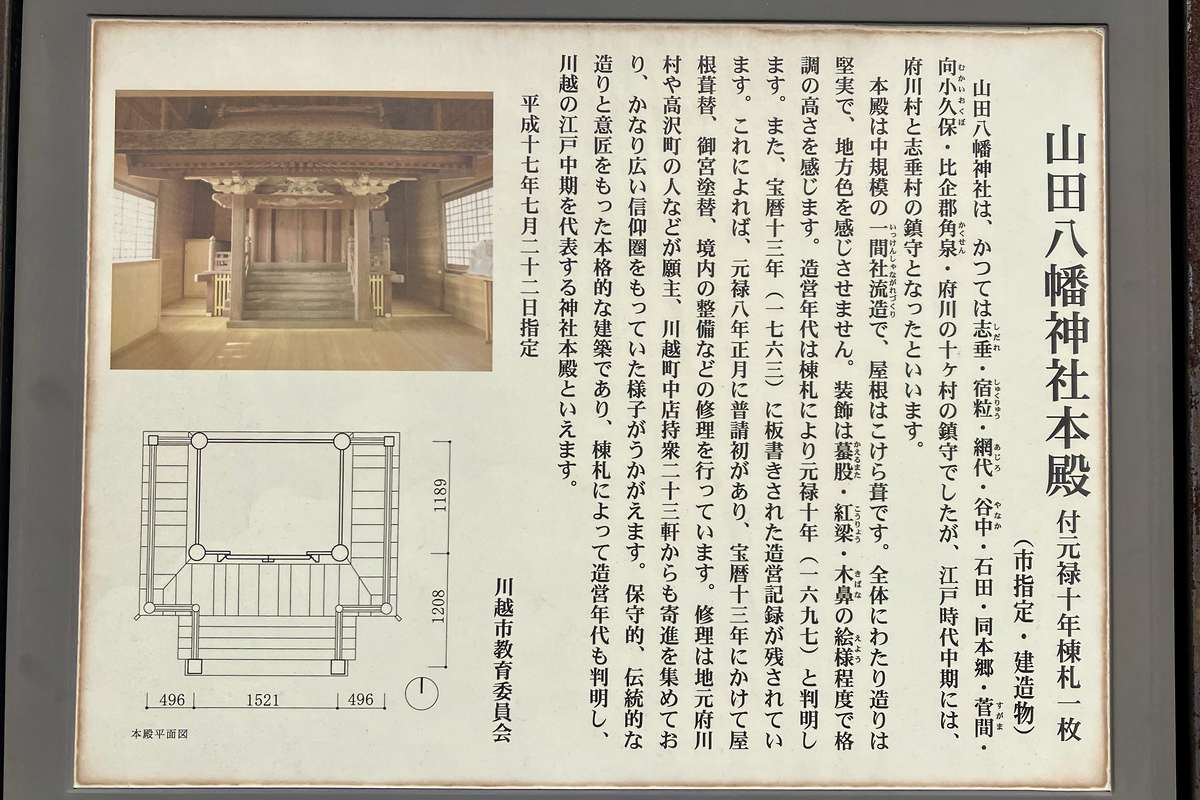 山田八幡神社本殿 付元禄十年棟札一枚
(市指定・建造物)
山田八幡神社は、かつては志垂・宿粒・網代・谷中・石田・同本郷・菅間・
しだれ しゅくりゅう あじろ やなか すがま
向小久保・比企郡角泉・府川の十ヶ村の鎮守でしたが、江戸時代中期には、
むかいおくぼ かくせん
府川村と志垂村の鎮守となったといいます。
本殿は中規模の一間社流造で、屋根はこけら葺です。全体にわたり造りは
いっけんしゃながれづくり
堅実で、地方色を感じさせません。装飾は蟇股・紅梁・木鼻の絵様程度で格
かえるまた こうりょう きばな えよう
調の高さを感じます。造営年代は棟札により元禄十年(一六九七)と判明し
ます。また、宝暦十三年(一七六三)に板書きされた造営記録が残されてい
ます。これによれば、元禄八年正月に普請初があり、宝暦十三年にかけて屋
根葺替、御宮塗替、境内の整備などの修理を行っています。修理は地元府川
村や高沢町の人などが願主、川越町中店持衆二十三軒からも寄進を集めてお
り、かなり広い信仰圏をもっていた様子がうかがえます。保守的、伝統的な
造りと意匠をもった本格的な建築であり、棟札によって造営年代も判明し、
川越の江戸中期を代表する神社本殿といえます。
平成十七年七月二十二日指定
川越市教育委員会
1189
1208
496
1521
496
本殿平面図